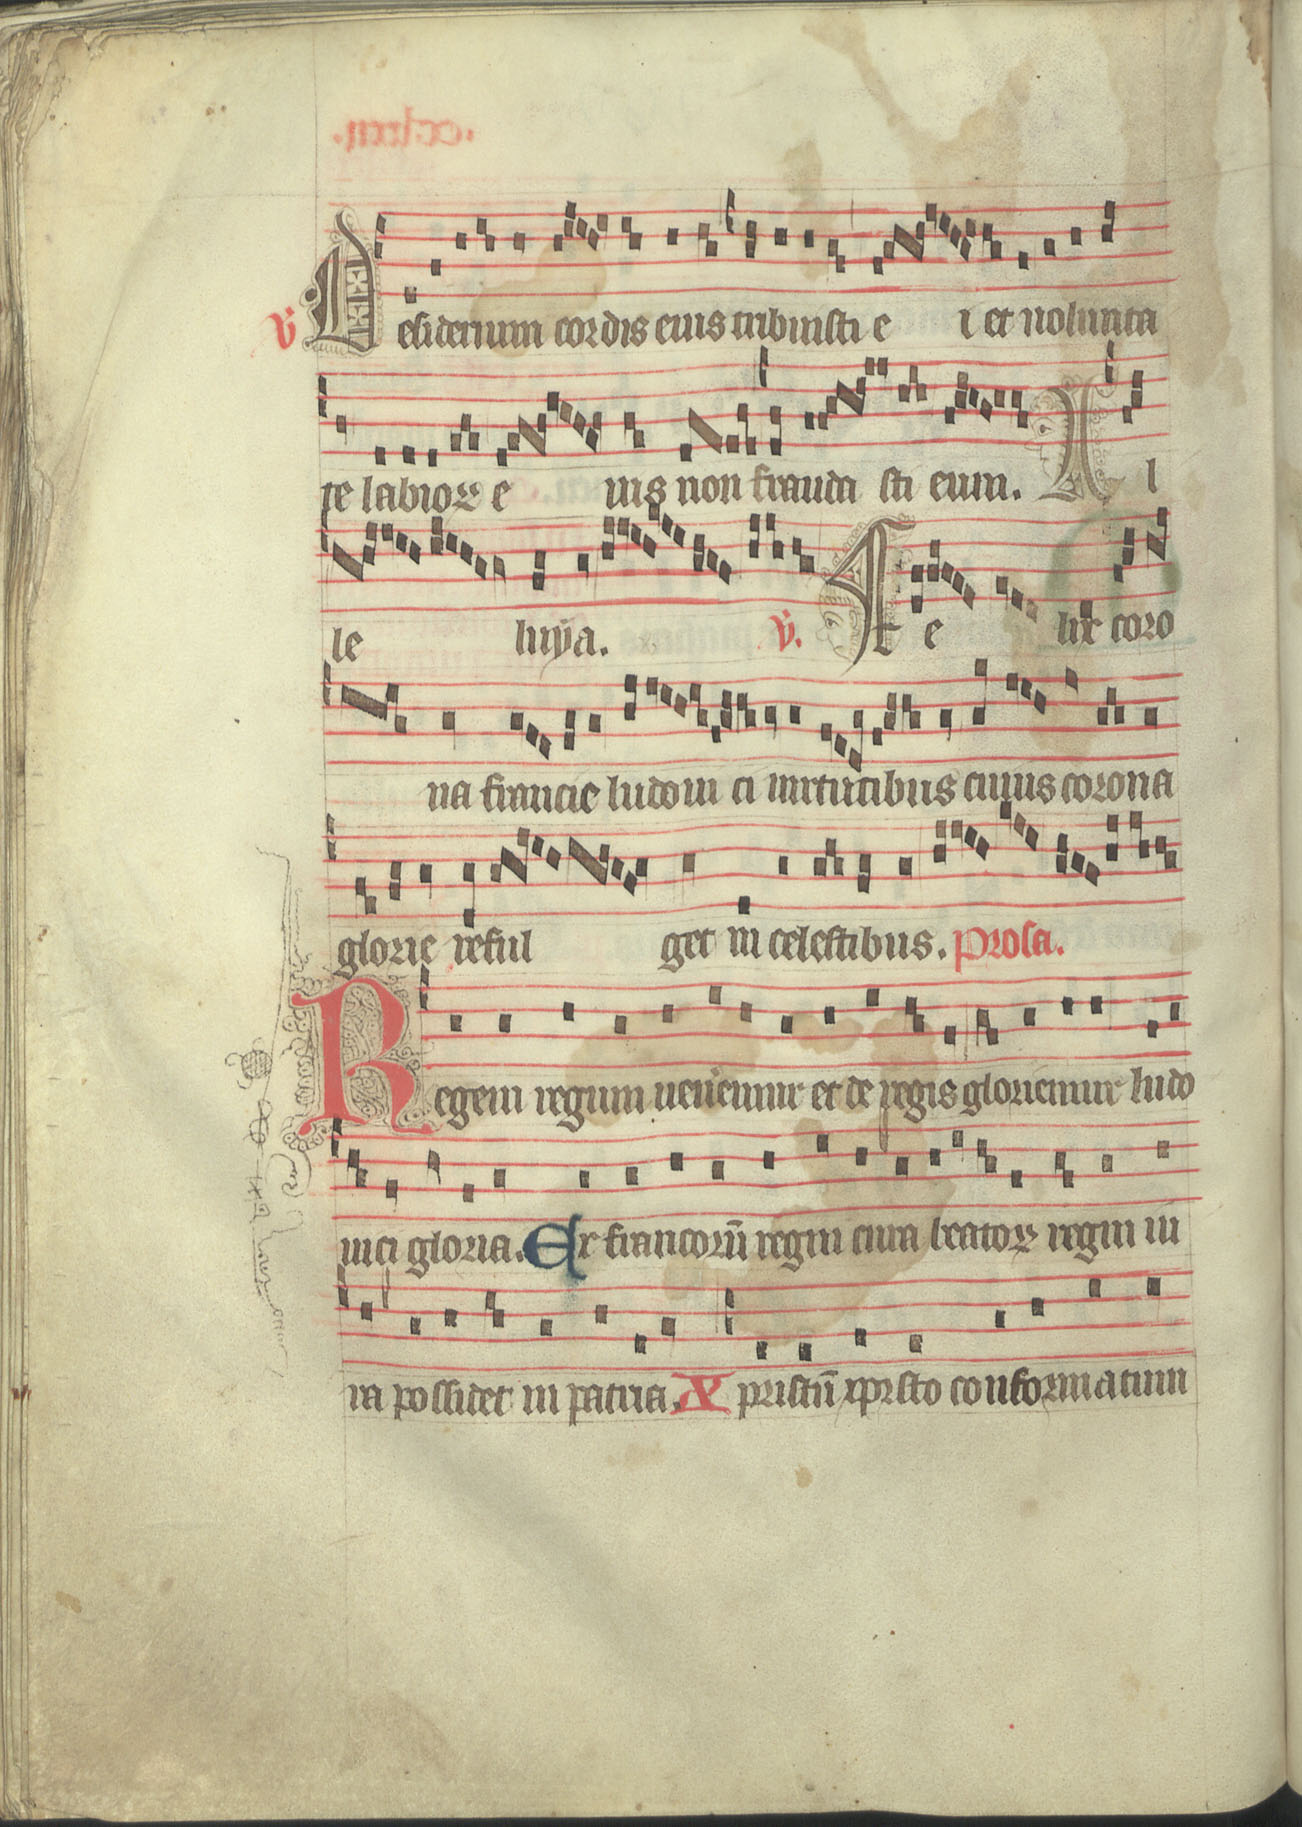 ℣ Desiderium cordis eius tribuisti e i et uolunta
te labioꝝ e ius non frauda sti eum. A l
le luya. ℣. Fe lix coro
na francie ludoui ci uirtutibus cuius corona
glorie reful get in celestibus. Prosa.
Regem regum ueneremur et de regis gloriemur ludo
uici gloria. Ex francorū regni cura beatoꝝ regni iu
ra possidet in patria. Xpristū xpristo conformatum